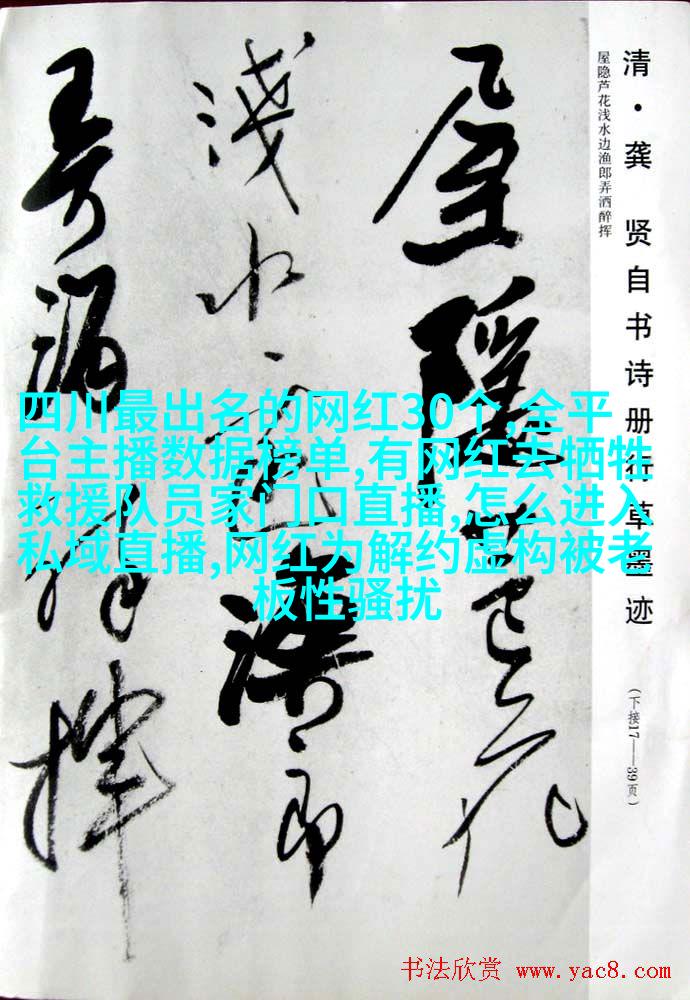 清·龚 贤自书诗册行草墨迹
(下接17——39页)
屋隐芦花浅水边渔郎弄洒醉挥
屋隱芦花
淺水边漁郎
弄酒醉揮
四川最出名的网红30个,全平
台主播数据榜单,有网红去牺牲
救援队员家门口直播,怎么进入
私域直播,网红为解约虚构被老
板性骚扰
书法欣赏 www.yac8.com